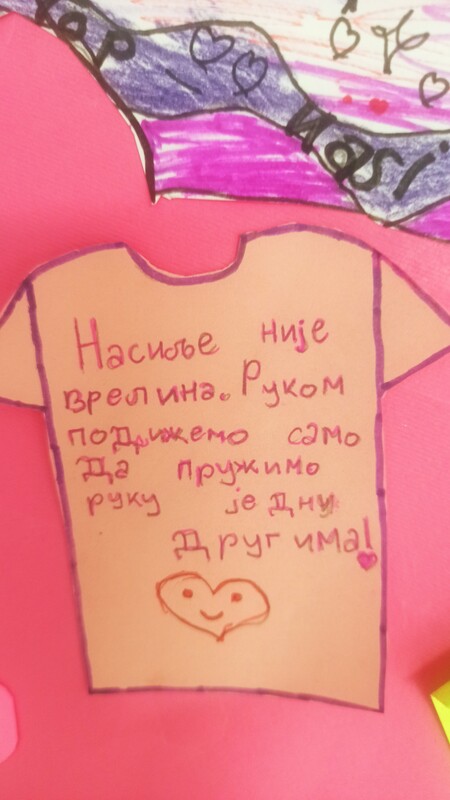 top
nasi
Насиље није
врелина. Руком
подижемо само
Да пружимо
руку једну
Другима!